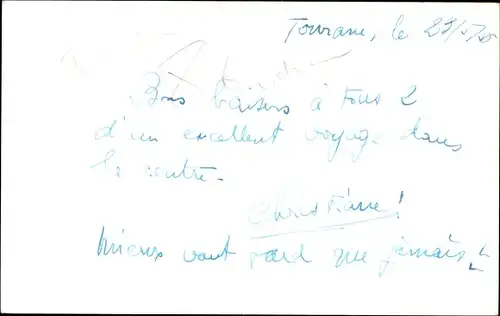 Tourane, le 29/5/5
Bons baisers à tous 2
d'un excellent voyage dans
le centre -
Christiane !
Mieux vaut tard que jamais !!